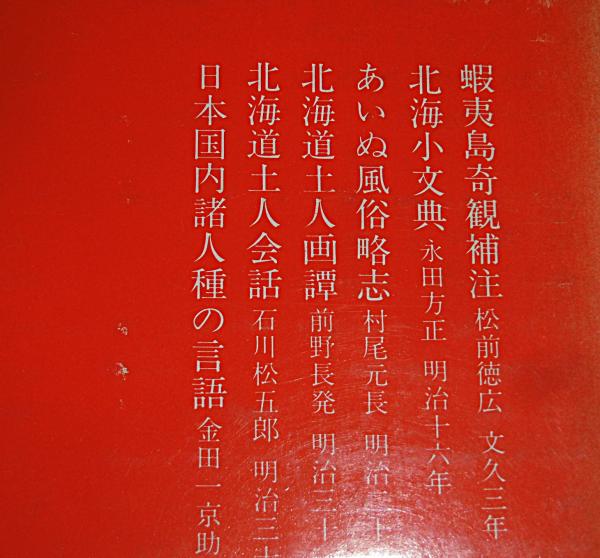 蝦夷島奇観補注 松前徳広 文久三年
北海小文典 永田方正 明治十六年
あいぬ風俗略志 村尾元長 明治二十
北海道土人画譚 前野長発 明治三十
北海道土人会話 石川松五郎 明治三十
日本国内諸人種の言語 金田一京助